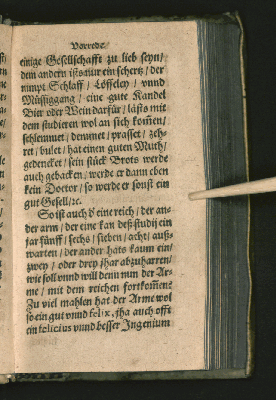 Vorrede/
einige Gesellschafft zu lieb seyn/
dem andern ists nur ein schertz/ der
nimpt Schlaff/ Löffeley/ vnd
Müssiggang/ eine gute Kandel
Bier oder Wein darfür/ lästs mit
dem studieren wol an sich kom̃en/
schlemmet/ demmet/ prasset/ zeh-
ret/ bulet/ hat einen guten Muth/
gedencket/ sein stück Brots werde
auch gebacken/ werde er dann eben
kein Doctor/ so werde er sonst ein
gut Gesell/ ꝛc.
So ist auch d' eine reich/ der an-
der arm/ der eine kan deß studij ein
jar fünff/ sechs/ sieben/ acht/ auß-
warten/ der ander hats kaum ein/
zwey/ oder drey jhar abzuharren/
wie soll vnnd will denn nun der Ar-
me/ mit dem reichen fortkom̃en?
Zu viel mahlen hat der Arme wol
so ein gut vnnd felix, jha auch offt
ein felicius vnnd besser Ingenium